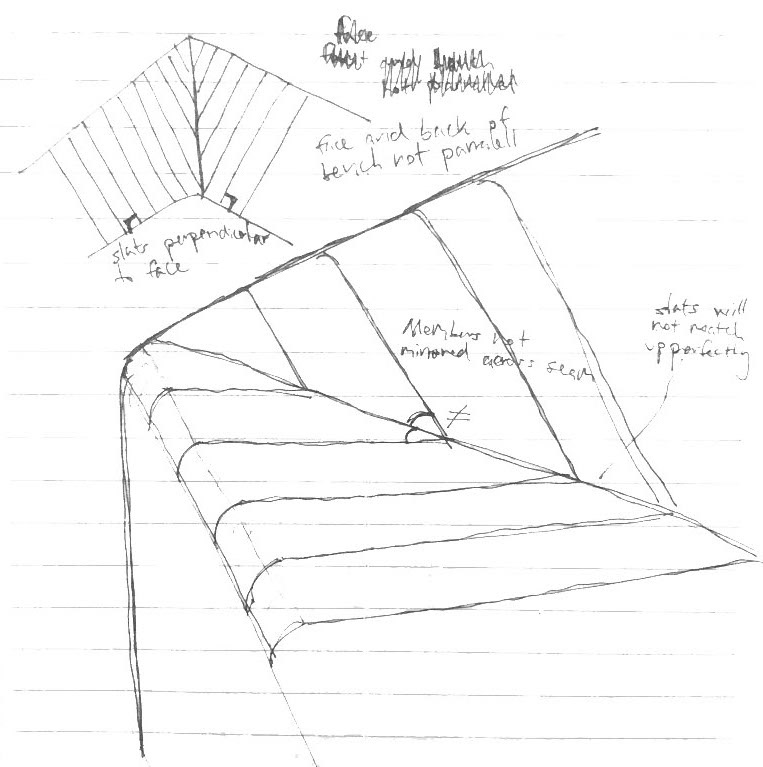 face and back of
bench not parralell
slats perpendicular
to face
slats will
not match
up perfectly
Members not
mirrored across seam
≠